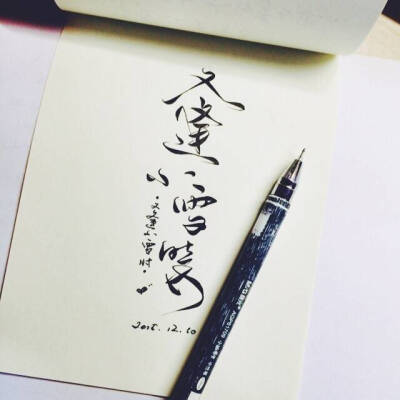 又逢小雪
·又逢小雪时·
2015.12.10